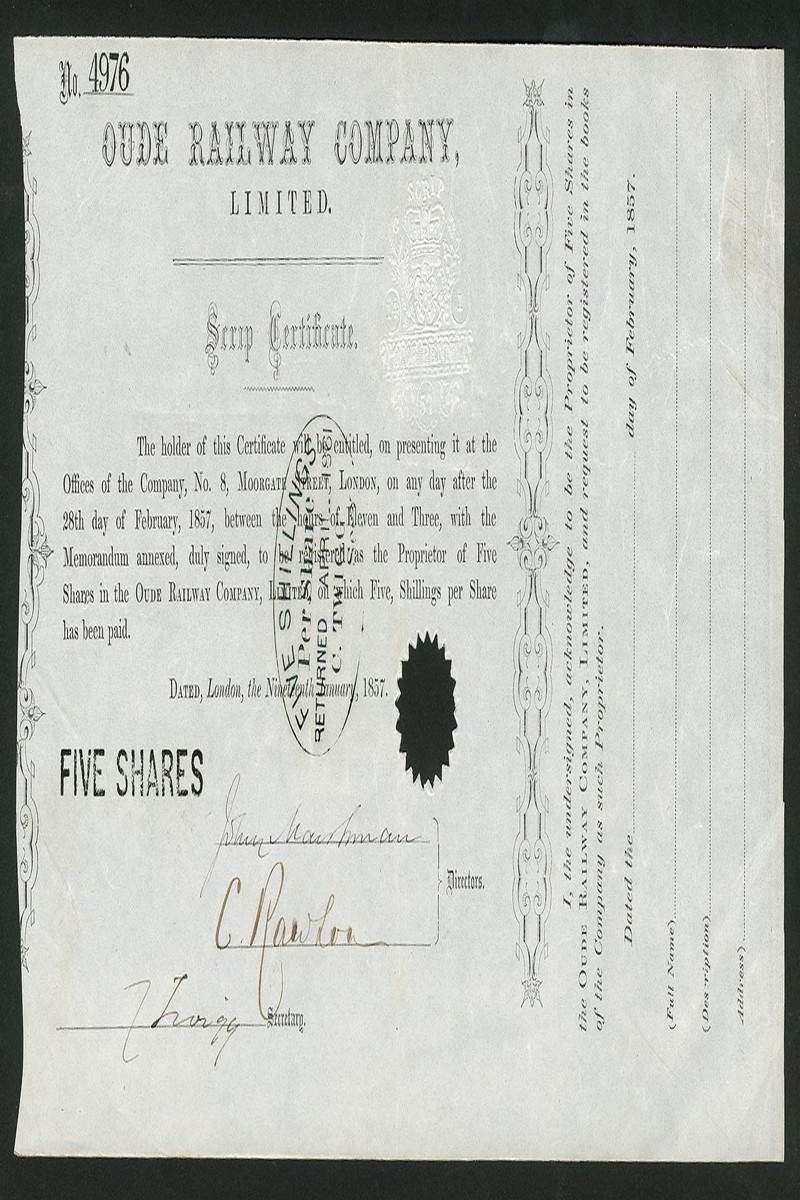 No. 4976
OUDE RAILWAY COMPANY,
LIMITED.
SCRIP
Scrip Certificate.
The holder of this Certificate will be entitled, on presenting it at the
Offices of the Company, No. 8, MOORGATE STREET, LONDON, on any day after the
28th day of February, 1857, between the hours of Eleven and Three, with the
Memorandum annexed, duly signed, to be registered as the Proprietor of Five
Shares in the OUDE RAILWAY COMPANY, LIMITED, on which Five, Shillings per Share
has been paid.
DATED, London, the Nineteenth January, 1857.
FIVE SHILLINGS
Per Share
RETURNED APRIL
C. TWIGG
FIVE SHARES
John Marshman
C. Rawson
Directors.
Twigg
Secretary.
I, the undersigned, acknowledge to be the Proprietor of Five Shares in
the OUDE RAILWAY COMPANY, LIMITED, and request to be registered in the books
of the Company as such Proprietor.
Dated the day of February, 1857.
(Full Name)
(Description)
Address)